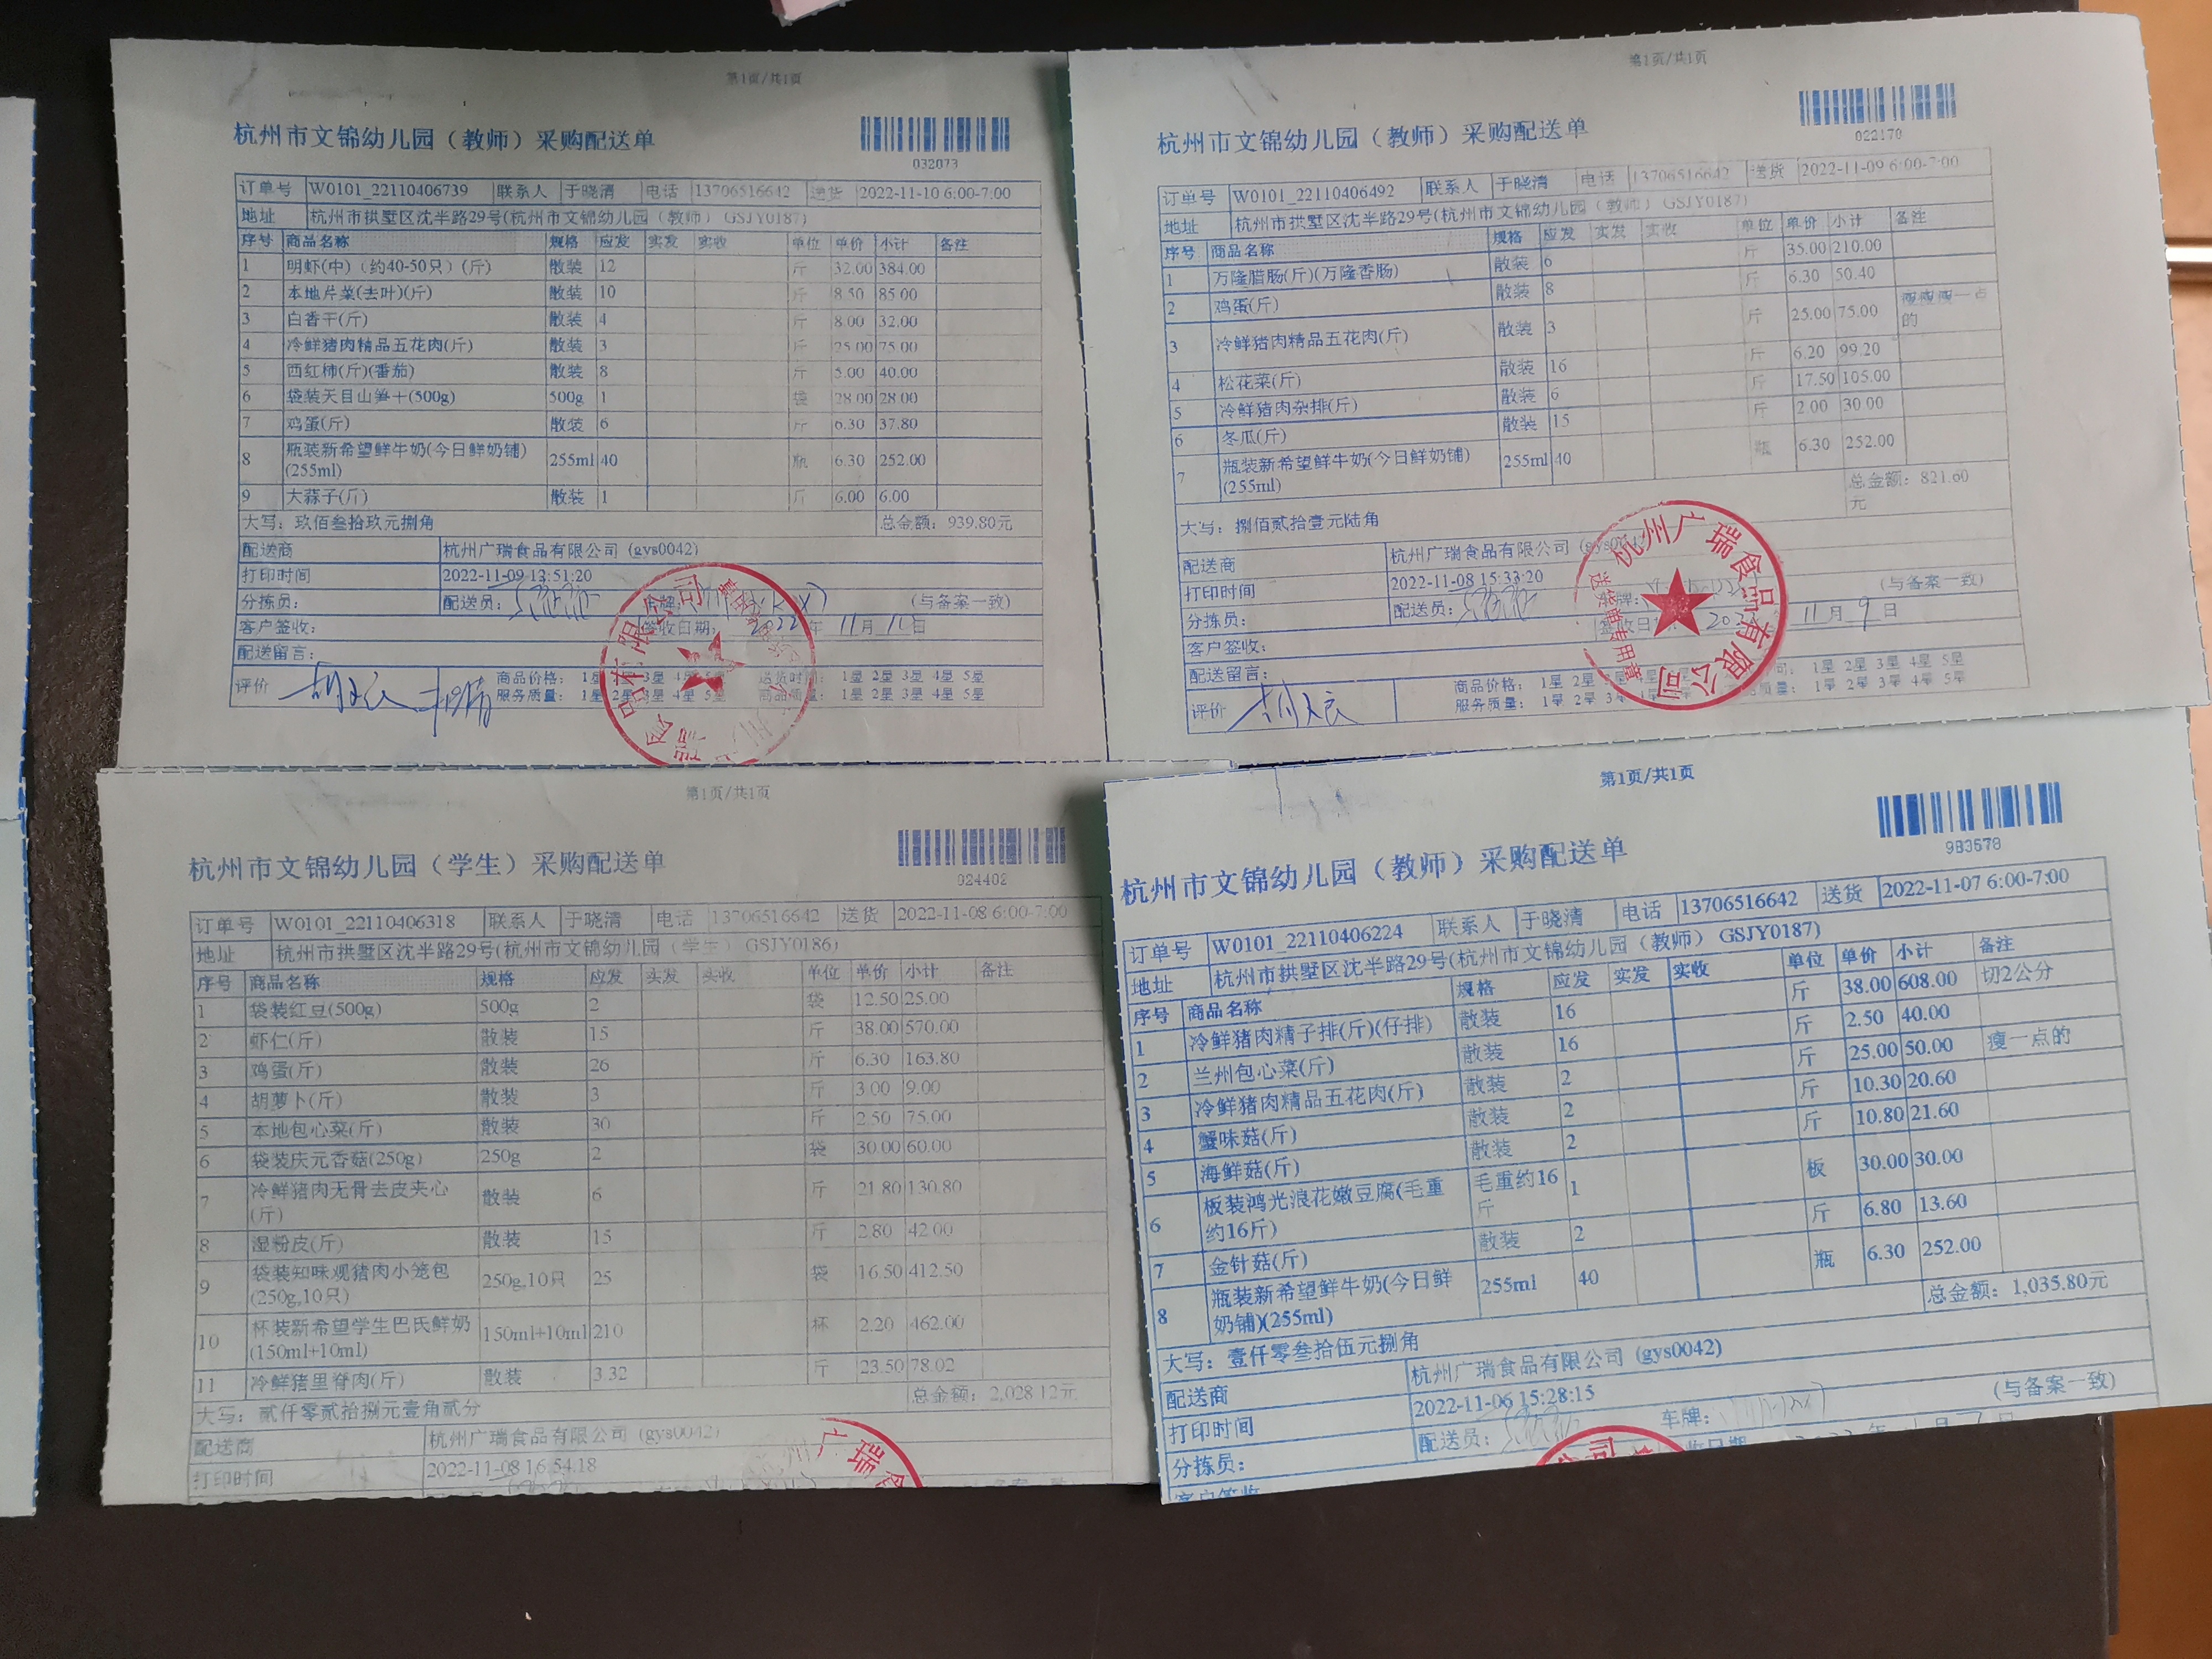 第1页/共1页
杭州市文锦幼儿园（教师）采购配送单
032073
订单号 W0101_22110406739 联系人 于晓清 电话 13706516642 送货 2022-11-10 6:00-7:00
地址 杭州市拱墅区沈半路29号(杭州市文锦幼儿园（教师） GSJY0187)
序号 商品名称 规格 应发 实发 实收 单位 单价 小计 备注
1 明虾(中)（约40-50只）(斤) 散装 12 斤 32.00 384.00
2 本地芹菜(去叶)(斤) 散装 10 斤 8.50 85.00
3 白香干(斤) 散装 4 斤 8.00 32.00
4 冷鲜猪肉精品五花肉(斤) 散装 3 斤 25.00 75.00
5 西红柿(斤)(番茄) 散装 8 斤 5.00 40.00
6 袋装天目山笋干(500g) 500g 1 袋 28.00 28.00
7 鸡蛋(斤) 散装 6 斤 6.30 37.80
8 瓶装新希望鲜牛奶(今日鲜奶铺)
(255ml) 255ml 40 瓶 6.30 252.00
9 大蒜子(斤) 散装 1 斤 6.00 6.00
大写：玖佰叁拾玖元捌角 总金额：939.80元
配送商 杭州广瑞食品有限公司 (gys0042)
打印时间 2022-11-09 13:51:20
分拣员： 配送员： 车牌： (与备案一致)
客户签收： 签收日期： 2022 年 11 月 10 日
配送留言：
评价 商品价格： 1星 2星 3星 4星 5星 送货时间： 1星 2星 3星 4星 5星
服务质量： 1星 2星 3星 4星 5星 商品质量： 1星 2星 3星 4星 5星
第1页/共1页
杭州市文锦幼儿园（教师）采购配送单
022170
订单号 W0101_22110406492 联系人 于晓清 电话 13706516642 送货 2022-11-09 6:00-7:00
地址 杭州市拱墅区沈半路29号(杭州市文锦幼儿园（教师） GSJY0187)
序号 商品名称 规格 应发 实发 实收 单位 单价 小计 备注
1 万隆腊肠(斤)(万隆香肠) 散装 6 斤 35.00 210.00
2 鸡蛋(斤) 散装 8 斤 6.30 50.40
3 冷鲜猪肉精品五花肉(斤) 散装 3 斤 25.00 75.00 瘦瘦瘦一点
的
4 松花菜(斤) 散装 16 斤 6.20 99.20
5 冷鲜猪肉杂排(斤) 散装 6 斤 17.50 105.00
6 冬瓜(斤) 散装 15 斤 2.00 30.00
7 瓶装新希望鲜牛奶(今日鲜奶铺)
(255ml) 255ml 40 瓶 6.30 252.00
大写：捌佰贰拾壹元陆角 总金额：821.60
元
配送商 杭州广瑞食品有限公司
打印时间 2022-11-08 15:33:20
分拣员： 配送员： 车牌： (与备案一致)
客户签收： 签收日期： 11 月 9 日
配送留言：
评价 商品价格： 1星 2星 1星 2星 3星 4星 5星
服务质量： 1星 2星 3星 1星 2星 3星 4星 5星
杭州广瑞食品有限公司
送货单专用章
第1页/共1页
杭州市文锦幼儿园（学生）采购配送单
024402
订单号 W0101_22110406318 联系人 于晓清 电话 13706516642 送货 2022-11-08 6:00-7:00
地址 杭州市拱墅区沈半路29号(杭州市文锦幼儿园（学生） GSJY0186)
序号 商品名称 规格 应发 实发 实收 单位 单价 小计 备注
1 袋装红豆(500g) 500g 2 袋 12.50 25.00
2 虾仁(斤) 散装 15 斤 38.00 570.00
3 鸡蛋(斤) 散装 26 斤 6.30 163.80
4 胡萝卜(斤) 散装 3 斤 3.00 9.00
5 本地包心菜(斤) 散装 30 斤 2.50 75.00
6 袋装庆元香菇(250g) 250g 2 袋 30.00 60.00
7 冷鲜猪肉无骨去皮夹心
(斤) 散装 6 斤 21.80 130.80
8 湿粉皮(斤) 散装 15 斤 2.80 42.00
9 袋装知味观猪肉小笼包
(250g,10只) 250g,10只 25 袋 16.50 412.50
10 杯装新希望学生巴氏鲜奶
(150ml+10ml) 150ml+10ml 210 杯 2.20 462.00
11 冷鲜猪里脊肉(斤) 散装 3.32 斤 23.50 78.02
大写：贰仟零贰拾捌元壹角贰分 总金额：2,028.12元
配送商 杭州广瑞食品有限公司 (gys0042)
打印时间 2022-11-08 16:54:18
广瑞食
第1页/共1页
杭州市文锦幼儿园（教师）采购配送单
983578
订单号 W0101_22110406224 联系人 于晓清 电话 13706516642 送货 2022-11-07 6:00-7:00
地址 杭州市拱墅区沈半路29号(杭州市文锦幼儿园（教师） GSJY0187)
序号 商品名称 规格 应发 实发 实收 单位 单价 小计 备注
1 冷鲜猪肉精子排(斤)(仔排) 散装 16 斤 38.00 608.00 切2公分
2 兰州包心菜(斤) 散装 16 斤 2.50 40.00
3 冷鲜猪肉精品五花肉(斤) 散装 2 斤 25.00 50.00 瘦一点的
4 蟹味菇(斤) 散装 2 斤 10.30 20.60
5 海鲜菇(斤) 散装 2 斤 10.80 21.60
6 板装鸿光浪花嫩豆腐(毛重
约16斤) 毛重约16
斤 1 板 30.00 30.00
7 金针菇(斤) 散装 2 斤 6.80 13.60
8 瓶装新希望鲜牛奶(今日鲜
奶铺)(255ml) 255ml 40 瓶 6.30 252.00
大写：壹仟零叁拾伍元捌角 总金额：1,035.80元
配送商 杭州广瑞食品有限公司 (gys0042)
打印时间 2022-11-06 15:28:15
分拣员： 配送员： 车牌： (与备案一致)